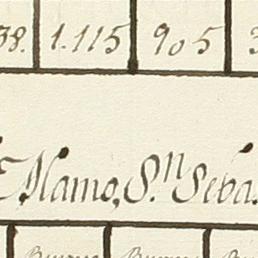 38. 1.115 905 3
Alamo, S.n Seba